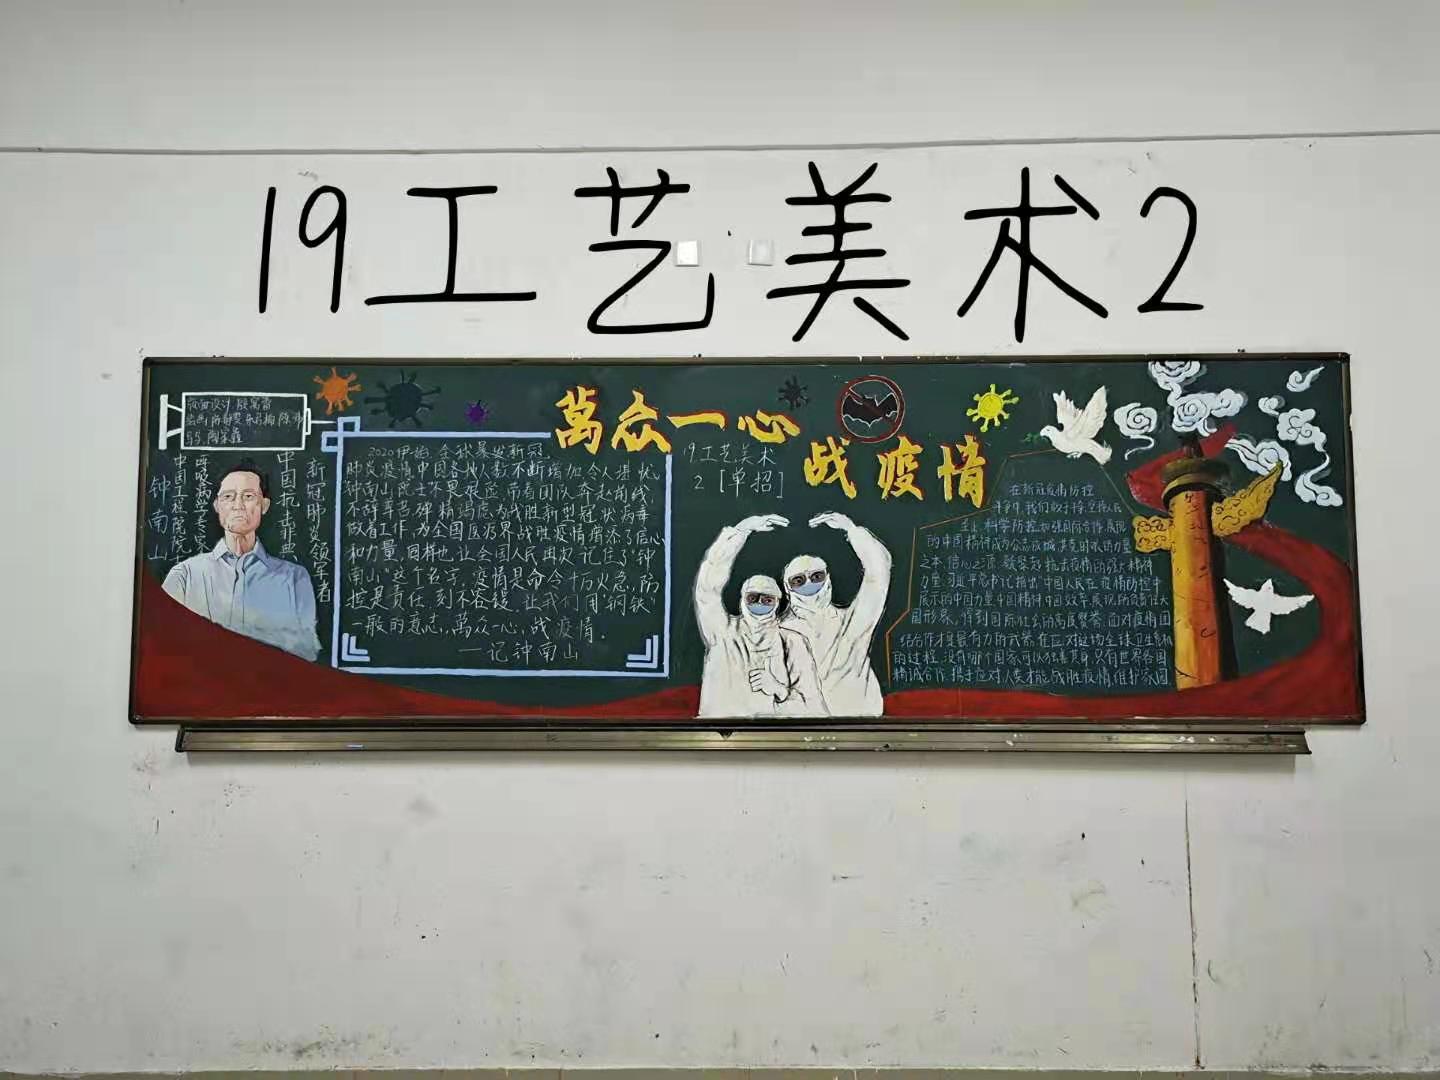 19工艺美术2
版面设计
萬众一心
战疫情
19.工艺美术
2 [单招]
钟南山
中国工程院院士
呼吸病学专家
中国抗击非典
新冠肺炎领军者
2020伊始,全球暴发新冠
肺炎疫情中国各地人数不断增加令人堪忧,
钟南山院士不畏艰险,带着团队奔赴前线,
不辞辛苦殚精竭虑,为战胜新型冠状病毒
做着工作,为全国医疗界战胜疫情增添了信心
和力量,同样也让全国人民再次记住了"钟
南山"这个名字,疫情是命令十万火急,防
控是责任,刻不容缓,让我们用钢铁
一般的意志,萬众一心,战疫情。
—记钟南山
在新冠疫情防控
斗争中,我们敢于
至上,科学防控加强国际合作,展现
的中国精神成为众志成城共克时艰的力量
之本,信心之源,凝聚起抗击疫情的强大精神
力量,习近平总书记指出"中国人民在疫情防控中
展示的中国力量,中国精神,中国效率,展现的负责任大
国形象,得到国际社会的高度赞赏,面对疫情团
结合作才是最有力的武器,在应对这场全球卫生危机
的过程,没有哪个国家可以独善其身,只有世界各国
精诚合作,携手应对人类才能战胜疫情,维护家园